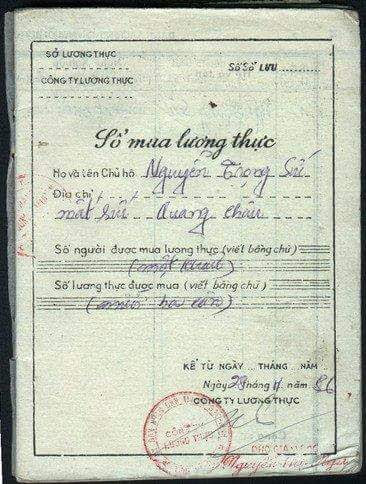 SỞ LƯƠNG THỰC
Số Sổ LƯU ............
CÔNG TY LƯƠNG THỰC
Sổ mua lương thực
Họ và tên Chủ hộ Nguyễn Trọng Sử
Địa chỉ
mất sức Quang Châu
Số người được mua lương thực (viết bằng chữ)
(một khẩu)
Số lương thực được mua (viết bằng chữ)
(mười ba cân)
KỂ TỪ NGÀY ... THÁNG ... NĂM ...
Ngày 28 tháng 11 năm 86
CÔNG TY LƯƠNG THỰC
CÔNG TY
LƯƠNG THỰC
PHÓ GIÁM ĐỐC
Nguyễn